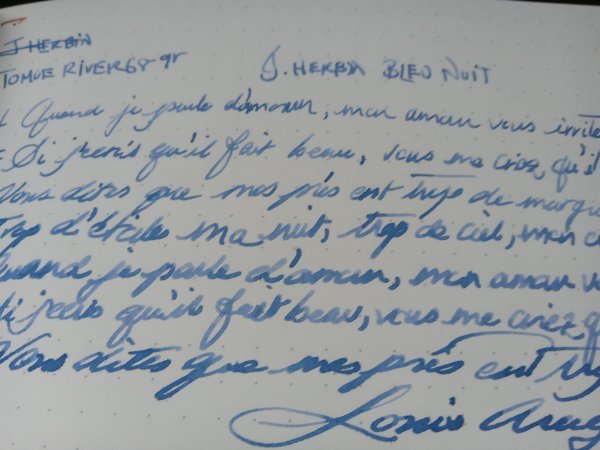 J HERBIN
TOMOE RIVER 68 gr J. HERBIN BLEU NUIT
Quand je parle d'amour, mon amour vous irrite
Si j'écris qu'il fait beau, vous me criez, qu'il
Vous dites que mes prés ont trop de margu
Trop d'étoile ma nuit, trop de ciel, mon
Quand je parle d'amour, mon amour
Si j'écris qu'il fait beau, vous me criez,
Vous dites que mes prés ont
Louis Arag